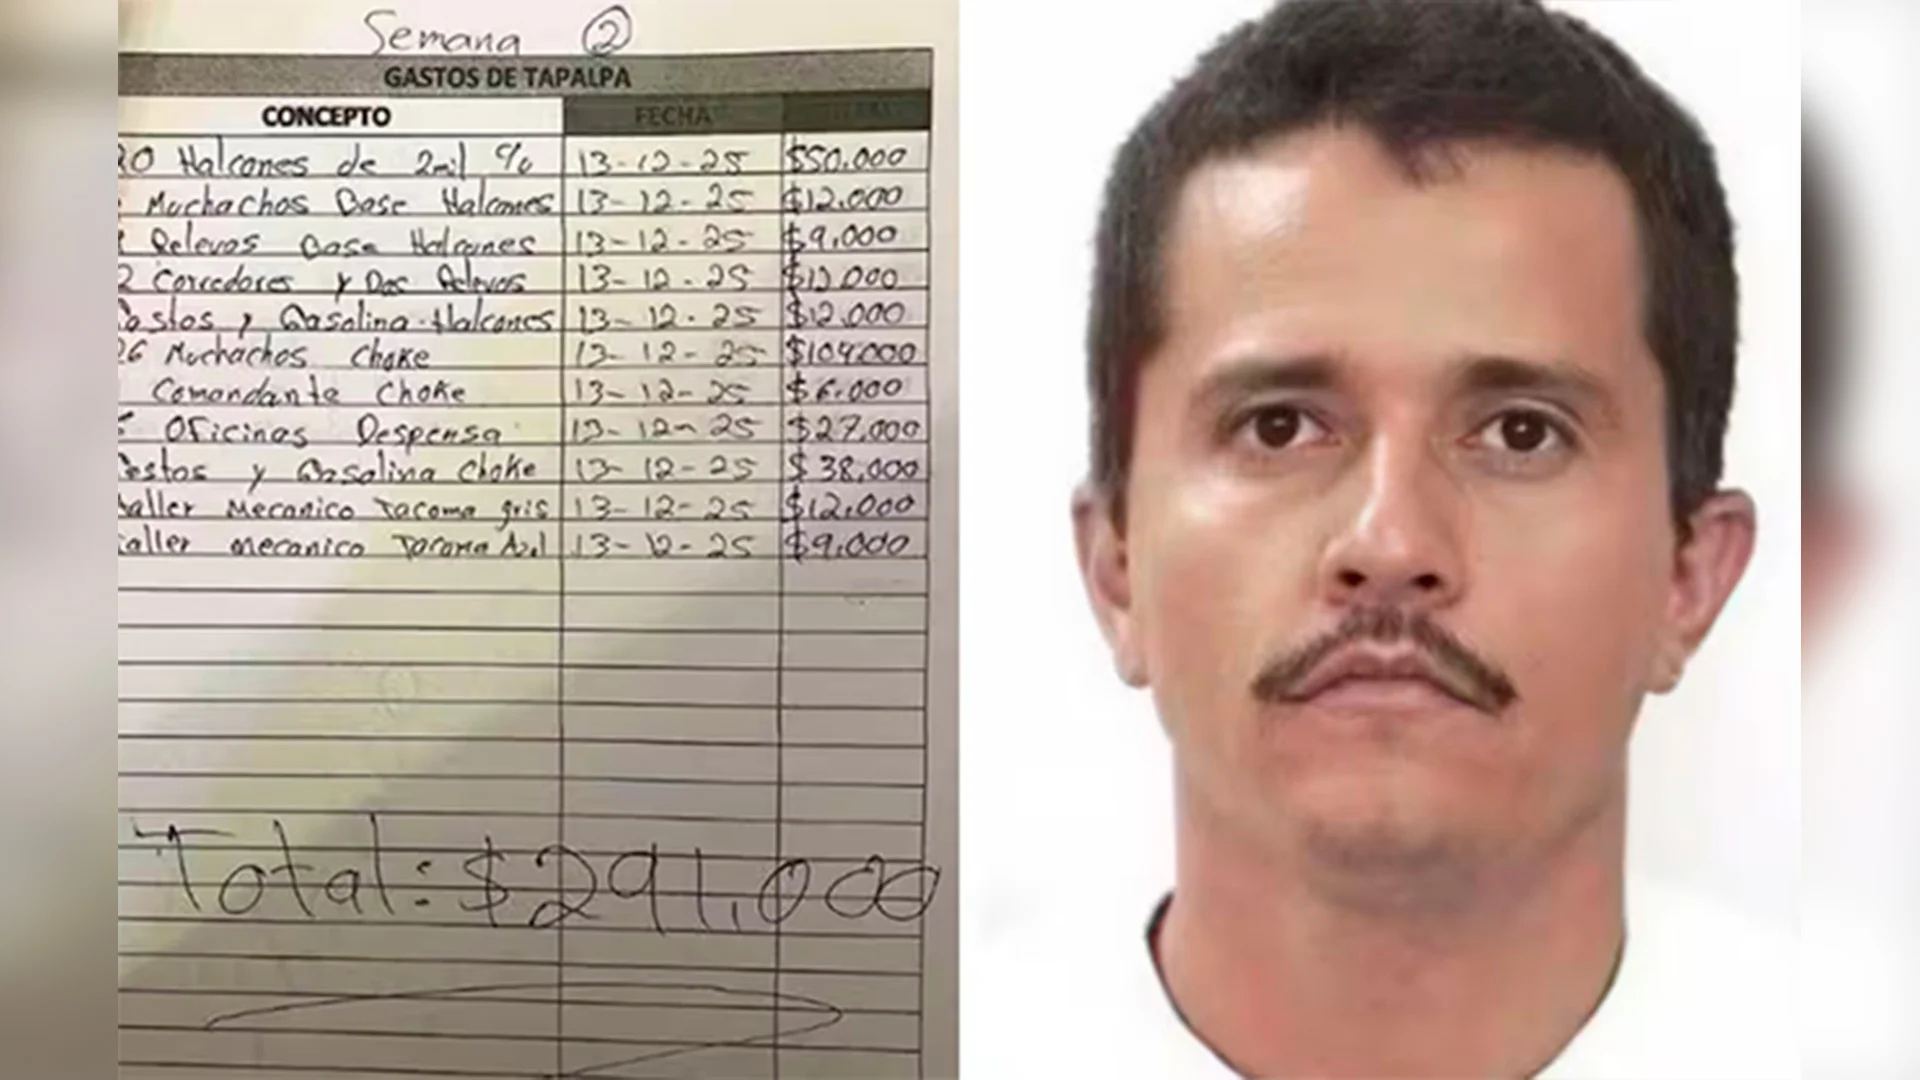 Semana 2
GASTOS DE TAPALPA
CONCEPTO FECHA
20 Halcones de 2mil c/u 13-12-25 $50.000
Muchachos Base Halcones 13-12-25 $12.000
Relevos Base Halcones 13-12-25 $9.000
2 Corredores y Dos Relevos 13-12-25 $12.000
Gastos y Gasolina Halcones 13-12-25 $12.000
26 Muchachos Choke 13-12-25 $104.000
Comandante Choke 13-12-25 $6.000
Oficinas Despensa 13-12-25 $27.000
Gestos y Gasolina Choke 13-12-25 $38.000
taller Mecanico Tacoma gris 13-12-25 $12.000
taller mecanico Tacoma Azul 13-12-25 $9.000
Total: $291,000